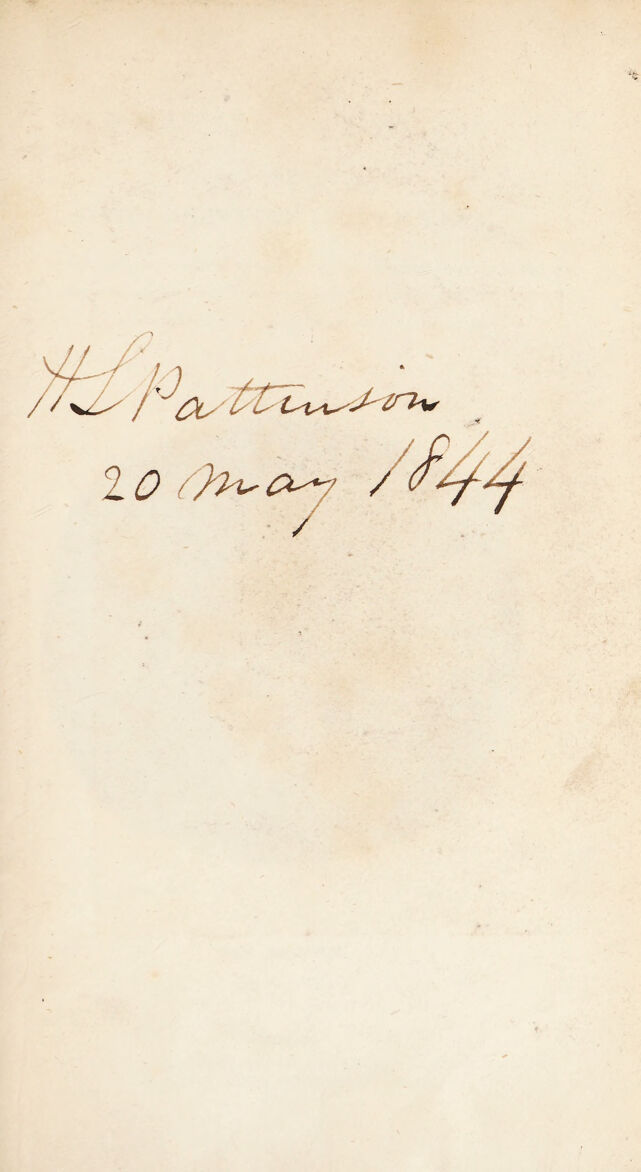 H L Pattinson
20 May 1844